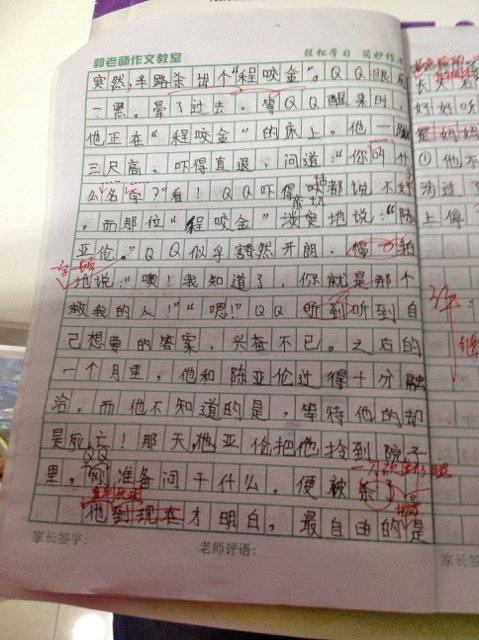 郭老师作文教室 轻松学习 简妙作
突然,半路杀出个“程咬金”。QQ眼前
一黑。晕了过去。等QQ醒来时,
他正在“程咬金”的床上。他一蹦
三尺高。吓得直退,问道:“你叫什
么名字?”看!QQ吓得话都说不好
。而那位“程咬金”淡定地说:“陈
亚伦。”QQ似乎豁然开朗。
地说:“噢!我知道了,你就是那个
救我的人!”“嗯!”QQ听到听到自
己想要的答案,兴奋不已。之后的
一个月里,他和陈亚伦过得十分融
洽,而他不知道的是,等待他的却
是死亡!那天,他亚伦把他抢到院子
里。QQ刚准备问干什么,便被杀了。
直到死前
他到现在才明白,最自由的是
家长签字: 老师评语:
长大
好好听
是妈妈
①他不
为过
上停
继
家长签